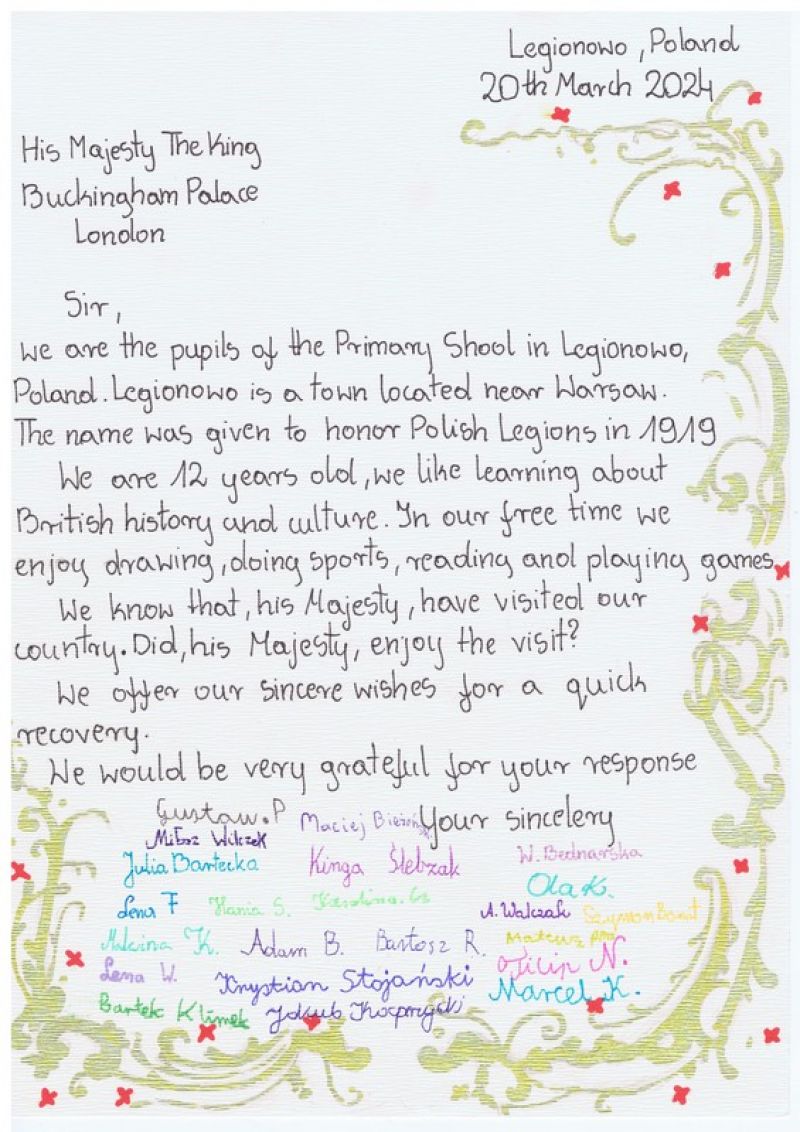 Legionowo, Poland
20th March 2024
His Majesty The King
Buckingham Palace
London
Sir,
We are the pupils of the Primary Shool in Legionowo,
Poland. Legionowo is a town located near Warsaw.
The name was given to honor Polish Legions in 1919
We are 12 years old, we like learning about
British history and culture. In our free time we
enjoy drawing, doing sports, reading and playing games
We know that, his Majesty, have visited our
country. Did, his Majesty, enjoy the visit?
We offer our sincere wishes for a quick
recovery.
We would be very grateful for your response
Your sincelery
Gustaw.P Maciej
Miłosz Wilczek
Julia Bartecka Kinga Ślebzak W. Bednarska
Ola K.
Lena F Hania S. Karolina. A. Walczak Szymon
Malwina K. Adam B. Bartosz R. Mateusz
Lena W. Filip N.
Krystian Stojański Marcel K.
Bartek Klimek Jakub